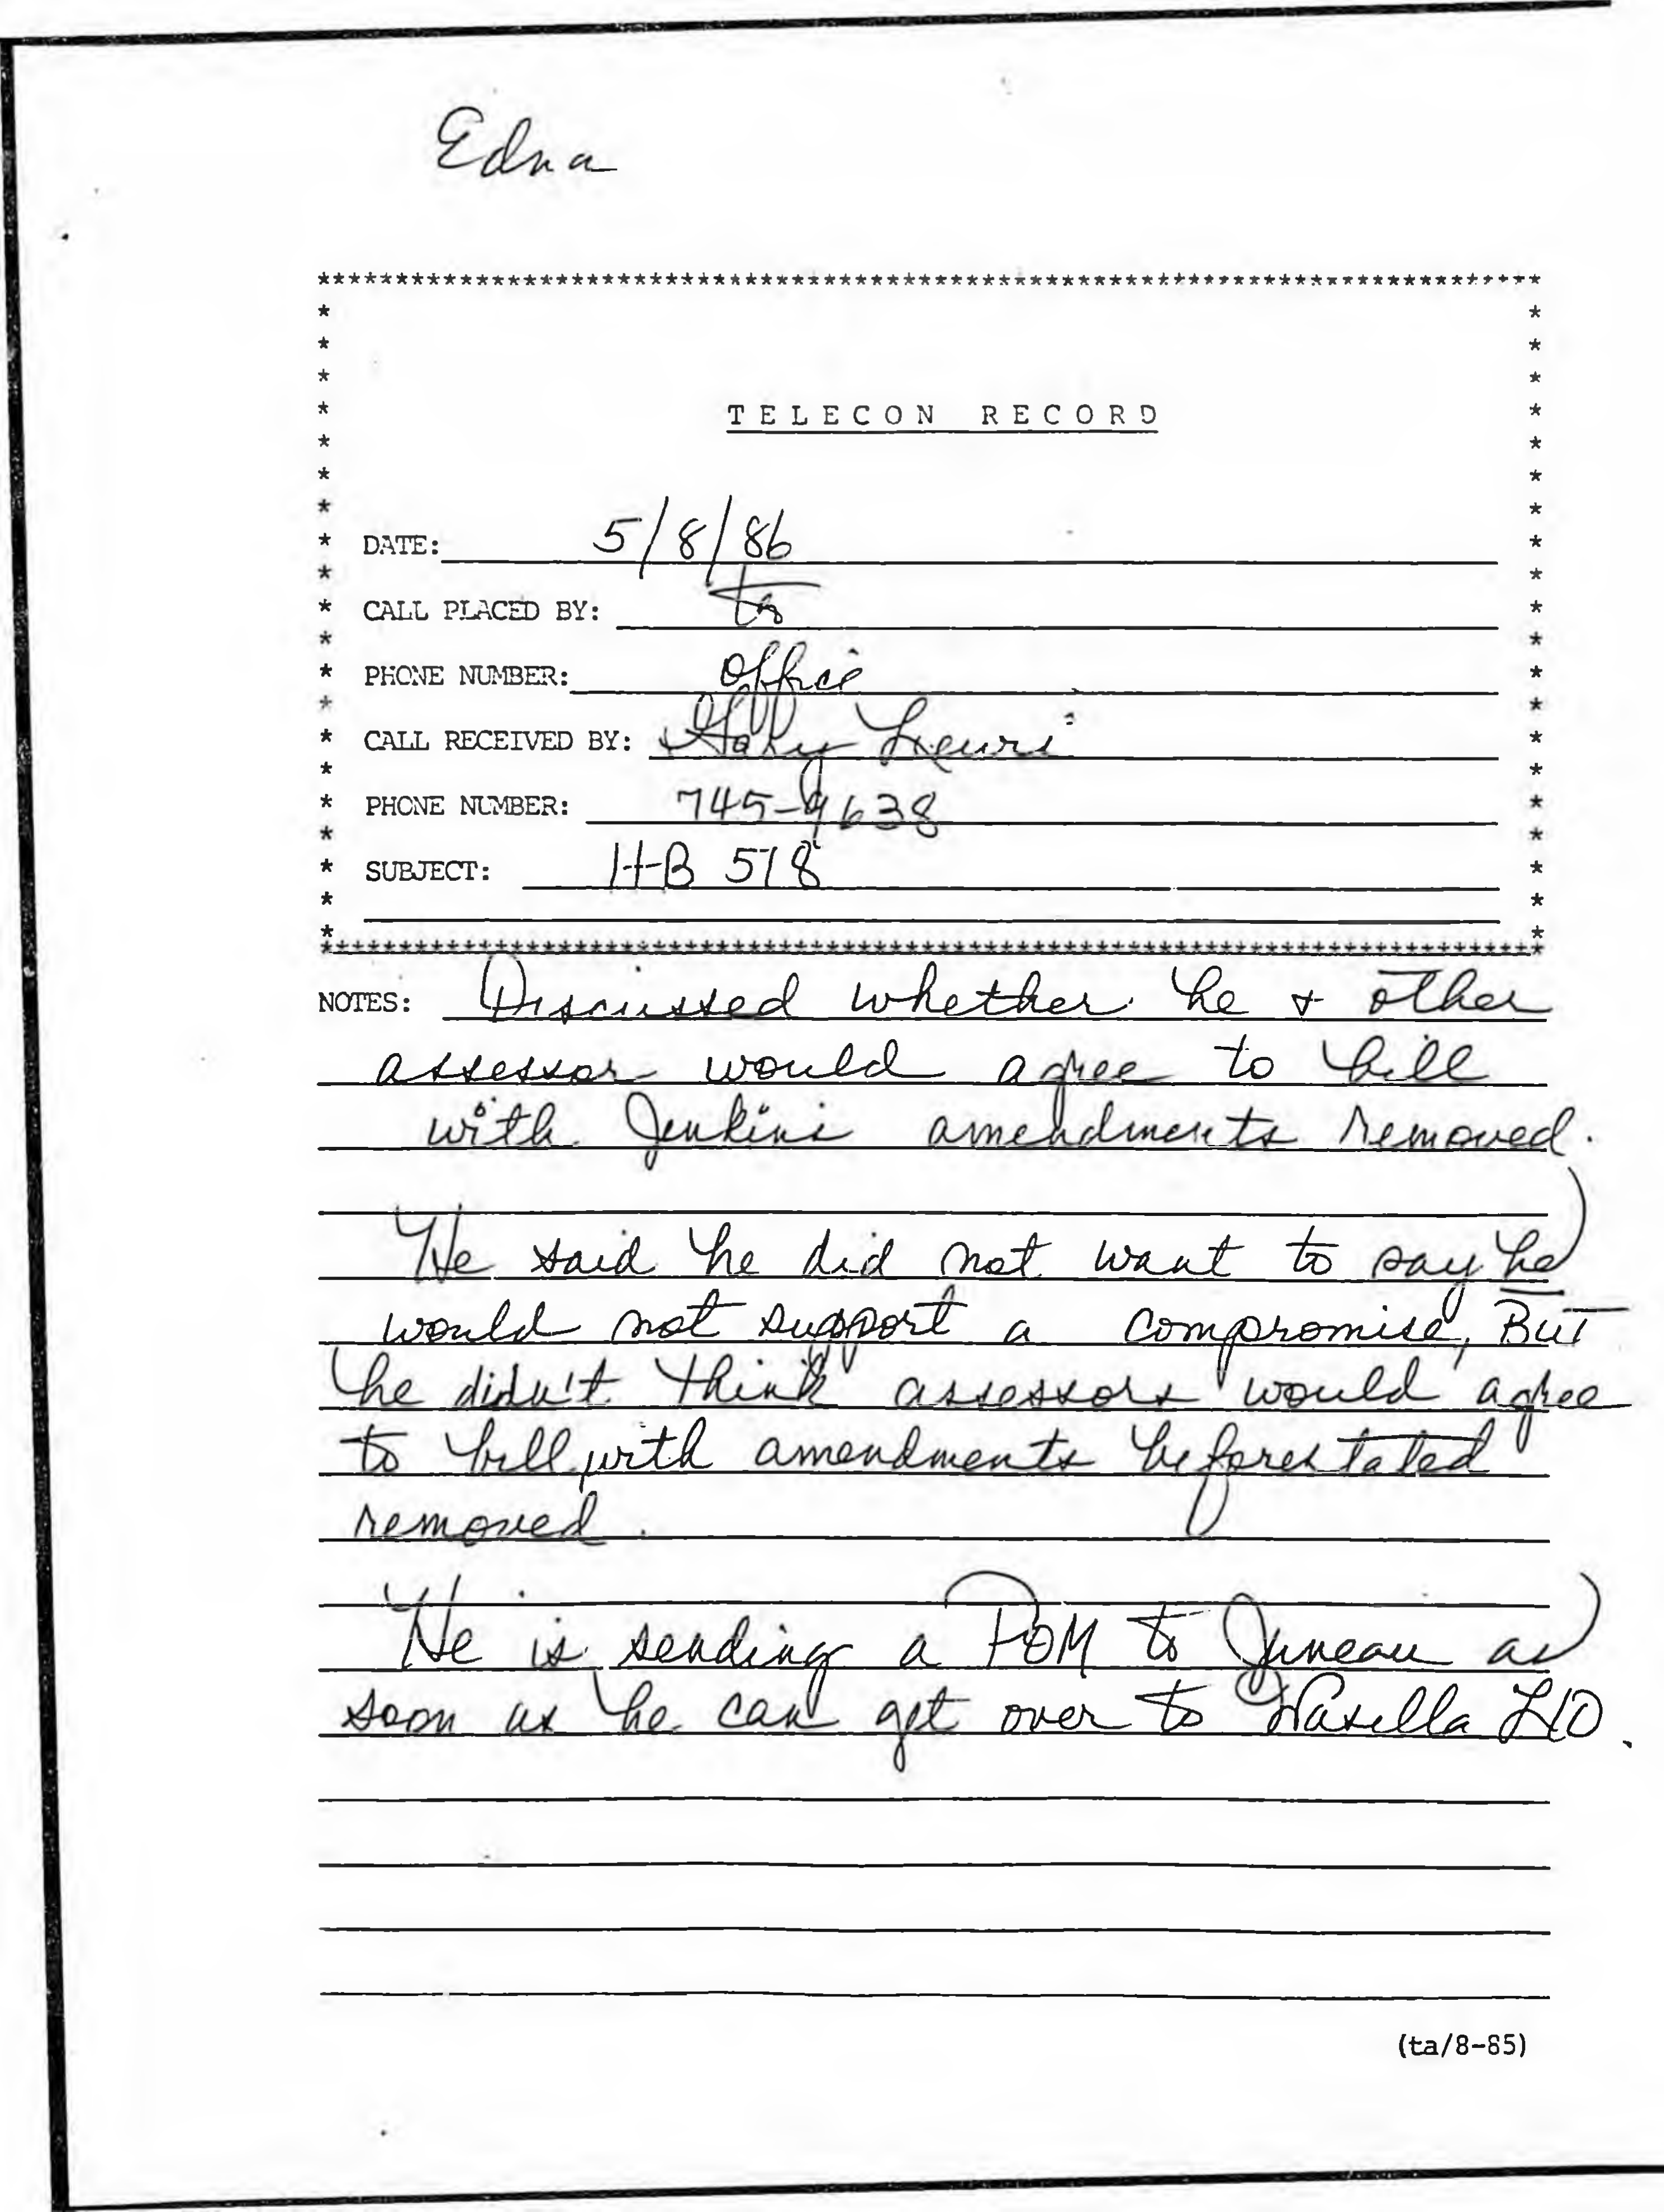 Edna
TELECON RECORD
DATE: 5/8/86
CALL PLACED BY: ta
PHONE NUMBER: office
CALL RECEIVED BY: Gary Lewis
PHONE NUMBER: 745-9638
SUBJECT: HB 578
NOTES: Discussed whether he & other
assessor would agree to bill
with Jenkins amendments removed.
He said he did not want to say he
would not support a compromise, But
he didn't think assessors would agree
to bill with amendments beforestated
removed.
He is sending a POM to Juneau as
soon as he can get over to Wasilla LIO.
(ta/8-85)